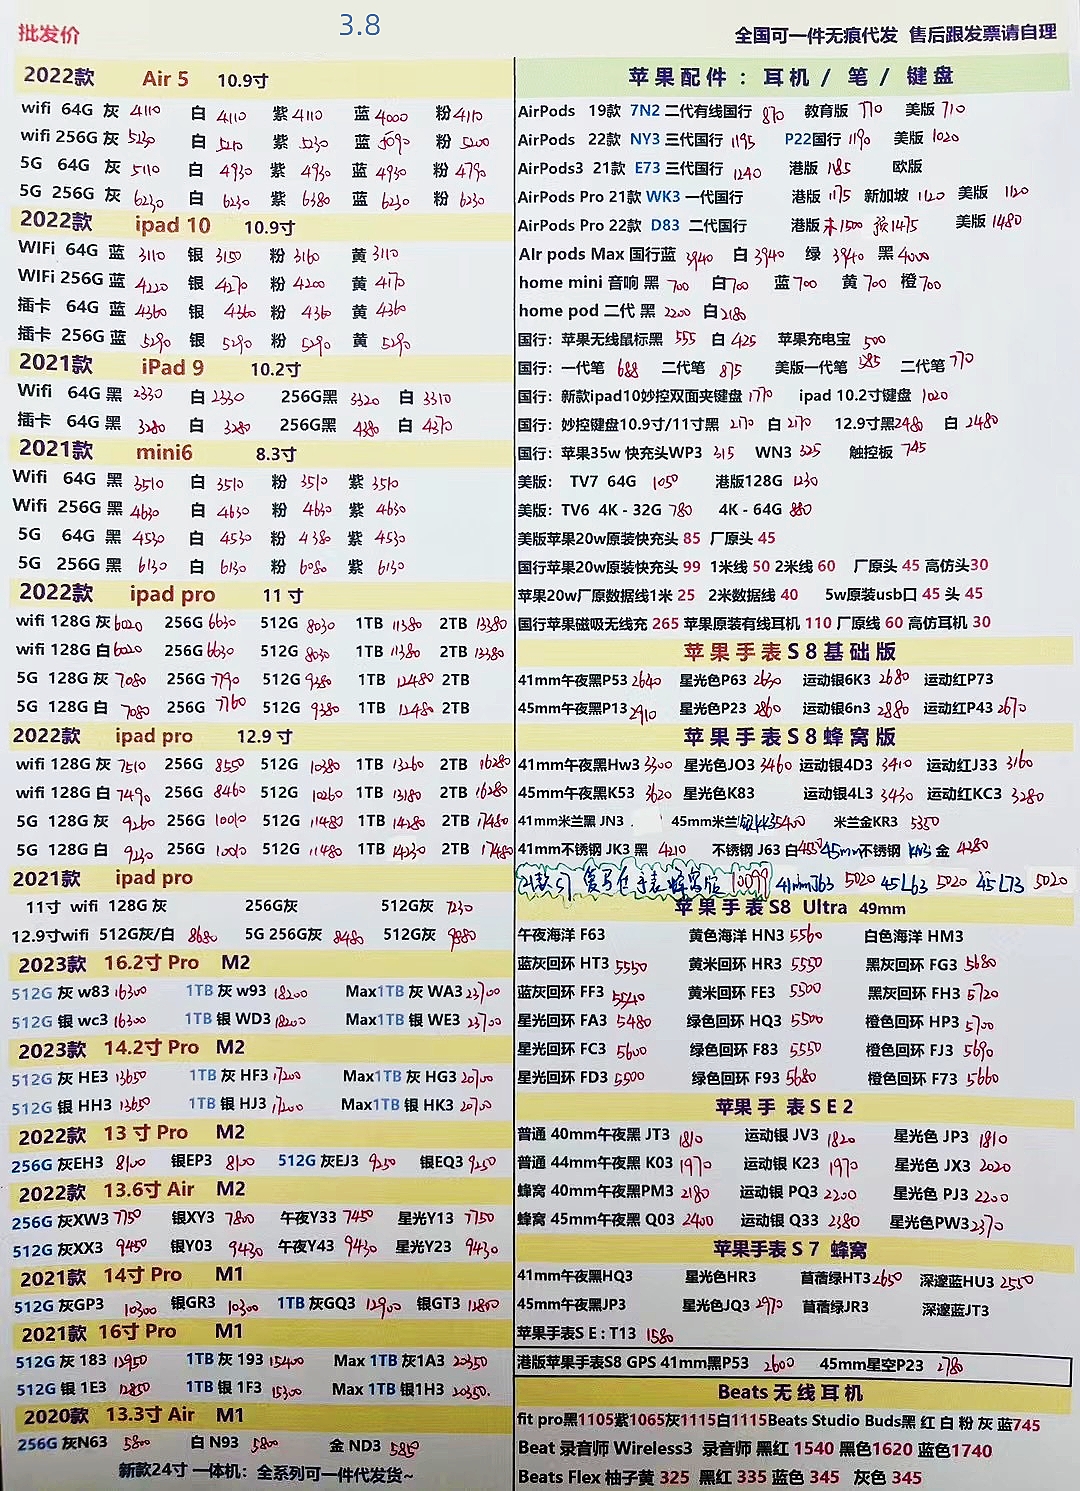 批发价
3.8
全国可一件无痕代发 售后跟发票请自理
2022款 Air 5 10.9寸
wifi 64G 灰 4110 白 4110 紫 4110 蓝 4000 粉 4110
wifi 256G 灰 5230 白 5210 紫 5230 蓝 5090 粉 5200
5G 64G 灰 5110 白 4930 紫 4930 蓝 4930 粉 4790
5G 256G 灰 6230 白 6230 紫 6380 蓝 6230 粉 6230
2022款 ipad 10 10.9寸
WIFi 64G 蓝 3110 银 3150 粉 3160 黄 3110
WIFi 256G 蓝 4220 银 4270 粉 4200 黄 4170
插卡 64G 蓝 4360 银 4360 粉 4360 黄 4360
插卡 256G 蓝 5290 银 5290 粉 5290 黄 5290
2021款 iPad 9 10.2寸
Wifi 64G 黑 2330 白 2330 256G黑 3320 白 3310
插卡 64G 黑 3280 白 3280 256G黑 4380 白 4370
2021款 mini6 8.3寸
Wifi 64G 黑 3510 白 3510 粉 3510 紫 3510
Wifi 256G 黑 4630 白 4630 粉 4630 紫 4630
5G 64G 黑 4530 白 4530 粉 4380 紫 4530
5G 256G 黑 6130 白 6130 粉 6080 紫 6130
2022款 ipad pro 11 寸
wifi 128G 灰 6020 256G 6630 512G 8030 1TB 11380 2TB 13380
wifi 128G 白 6020 256G 6630 512G 8030 1TB 11380 2TB 13380
5G 128G 灰 7080 256G 7790 512G 9280 1TB 12480 2TB
5G 128G 白 7080 256G 7760 512G 9380 1TB 12480 2TB
2022款 ipad pro 12.9 寸
wifi 128G 灰 7510 256G 8550 512G 10380 1TB 13260 2TB 16280
wifi 128G 白 7490 256G 8460 512G 10260 1TB 13180 2TB 16280
5G 128G 灰 9260 256G 10010 512G 11480 1TB 14280 2TB 17480
5G 128G 白 9230 256G 10010 512G 11480 1TB 14230 2TB 17480
2021款 ipad pro
11寸 wifi 128G 灰 256G灰 512G灰 7230
12.9寸wifi 512G灰/白 8680 5G 256G灰 8480 512G灰 9880
2023款 16.2寸 Pro M2
512G 灰 w83 16300 1TB 灰 w93 18200 Max1TB 灰 WA3 23700
512G 银 wc3 16300 1TB 银 WD3 18200 Max1TB 银 WE3 23700
2023款 14.2寸 Pro M2
512G 灰 HE3 13650 1TB 灰 HF3 17200 Max1TB 灰 HG3 20700
512G 银 HH3 13650 1TB 银 HJ3 17200 Max1TB 银 HK3 20700
2022款 13 寸 Pro M2
256G 灰EH3 8100 银EP3 8100 512G 灰EJ3 9250 银EQ3 9250
2022款 13.6寸 Air M2
256G 灰XW3 7750 银XY3 7800 午夜Y33 7450 星光Y13 7750
512G 灰XX3 9450 银Y03 9430 午夜Y43 9430 星光Y23 9430
2021款 14寸 Pro M1
512G 灰GP3 10300 银GR3 10300 1TB 灰GQ3 12900 银GT3 12800
2021款 16寸 Pro M1
512G 灰 183 12950 1TB 灰 193 15400 Max 1TB 灰1A3 20350
512G 银 1E3 12850 1TB 银 1F3 15300 Max 1TB 银1H3 20350.
2020款 13.3寸 Air M1
256G 灰N63 5800 白 N93 5800 金 ND3 5850
新款24寸 一体机：全系列可一件代发货~
苹果配件：耳机 / 笔 / 键盘
AirPods 19款 7N2 二代有线国行 870 教育版 770 美版 710
AirPods 22款 NY3 三代国行 1195 P22国行 1190 美版 1020
AirPods3 21款 E73 三代国行 1240 港版 1185 欧版
AirPods Pro 21款 WK3 一代国行 港版 1175 新加坡 1120 美版 1120
AirPods Pro 22款 D83 二代国行 港版 1500 1475 美版 1480
AIr pods Max 国行蓝 3940 白 3940 绿 3940 黑 4000
home mini 音响 黑 700 白 700 蓝 700 黄 700 橙 700
home pod 二代 黑 2200 白 2180
国行：苹果无线鼠标黑 555 白 425 苹果充电宝 500
国行：一代笔 688 二代笔 875 美版一代笔 585 二代笔 770
国行：新款ipad10妙控双面夹键盘 1770 ipad 10.2寸键盘 1020
国行：妙控键盘10.9寸/11寸黑 2170 白 2170 12.9寸黑 2480 白 2480
国行：苹果35w 快充头WP3 315 WN3 325 触控板 745
美版： TV7 64G 1050 港版128G 1230
美版：TV6 4K - 32G 780 4K - 64G 880
美版苹果20w原装快充头 85 厂原头 45
国行苹果20w原装快充头 99 1米线 50 2米线 60 厂原头 45 高仿头30
苹果20w厂原数据线1米 25 2米数据线 40 5w原装usb口 45 头 45
国行苹果磁吸无线充 265 苹果原装有线耳机 110 厂原线 60 高仿耳机 30
苹果手表S8基础版
41mm午夜黑P53 2640 星光色P63 2630 运动银6K3 2680 运动红P73
45mm午夜黑P13 2910 星光色P23 2860 运动银6n3 2880 运动红P43 2670
苹果手表S8蜂窝版
41mm午夜黑Hw3 3300 星光色JO3 3460 运动银4D3 3410 运动红J33 3160
45mm午夜黑K53 3620 星光色K83 运动银4L3 3430 运动红KC3 3280
41mm米兰黑 JN3 45mm米兰银KK3 5400 米兰金KR3 5350
41mm不锈钢 JK3 黑 4210 不锈钢 J63 白 4550 45mm不锈钢 KN3 金 4280
S7 爱马仕手表蜂窝版 10099 41mm J63 5020 45 L63 5020 45 L73 5020
苹果手表S8 Ultra 49mm
午夜海洋 F63 黄色海洋 HN3 5560 白色海洋 HM3
蓝灰回环 HT3 5550 黄米回环 HR3 5550 黑灰回环 FG3 5680
蓝灰回环 FF3 5540 黄米回环 FE3 5500 黑灰回环 FH3 5720
星光回环 FA3 5480 绿色回环 HQ3 5500 橙色回环 HP3 5700
星光回环 FC3 5600 绿色回环 F83 5550 橙色回环 FJ3 5690
星光回环 FD3 5500 绿色回环 F93 5680 橙色回环 F73 5660
苹果手表SE2
普通 40mm午夜黑 JT3 1810 运动银 JV3 1820 星光色 JP3 1810
普通 44mm午夜黑 K03 1970 运动银 K23 1970 星光色 JX3 2020
蜂窝 40mm午夜黑PM3 2180 运动银 PQ3 2200 星光色 PJ3 2200
蜂窝 45mm午夜黑 Q03 2400 运动银 Q33 2380 星光色PW3 2370
苹果手表 S 7 蜂窝
41mm午夜黑HQ3 星光色HR3 苜蓿绿HT3 2650 深邃蓝HU3 2550
45mm午夜黑JP3 星光色JQ3 2970 苜蓿绿JR3 深邃蓝JT3
苹果手表S E : T13 1580
港版苹果手表S8 GPS 41mm黑P53 2600 45mm星空P23 2780
Beats 无线耳机
fit pro黑1105紫1065灰1115白1115Beats Studio Buds黑 红 白 粉 灰 蓝745
Beat 录音师 Wireless3 录音师 黑红 1540 黑色1620 蓝色1740
Beats Flex 柚子黄 325 黑红 335 蓝色 345 灰色 345